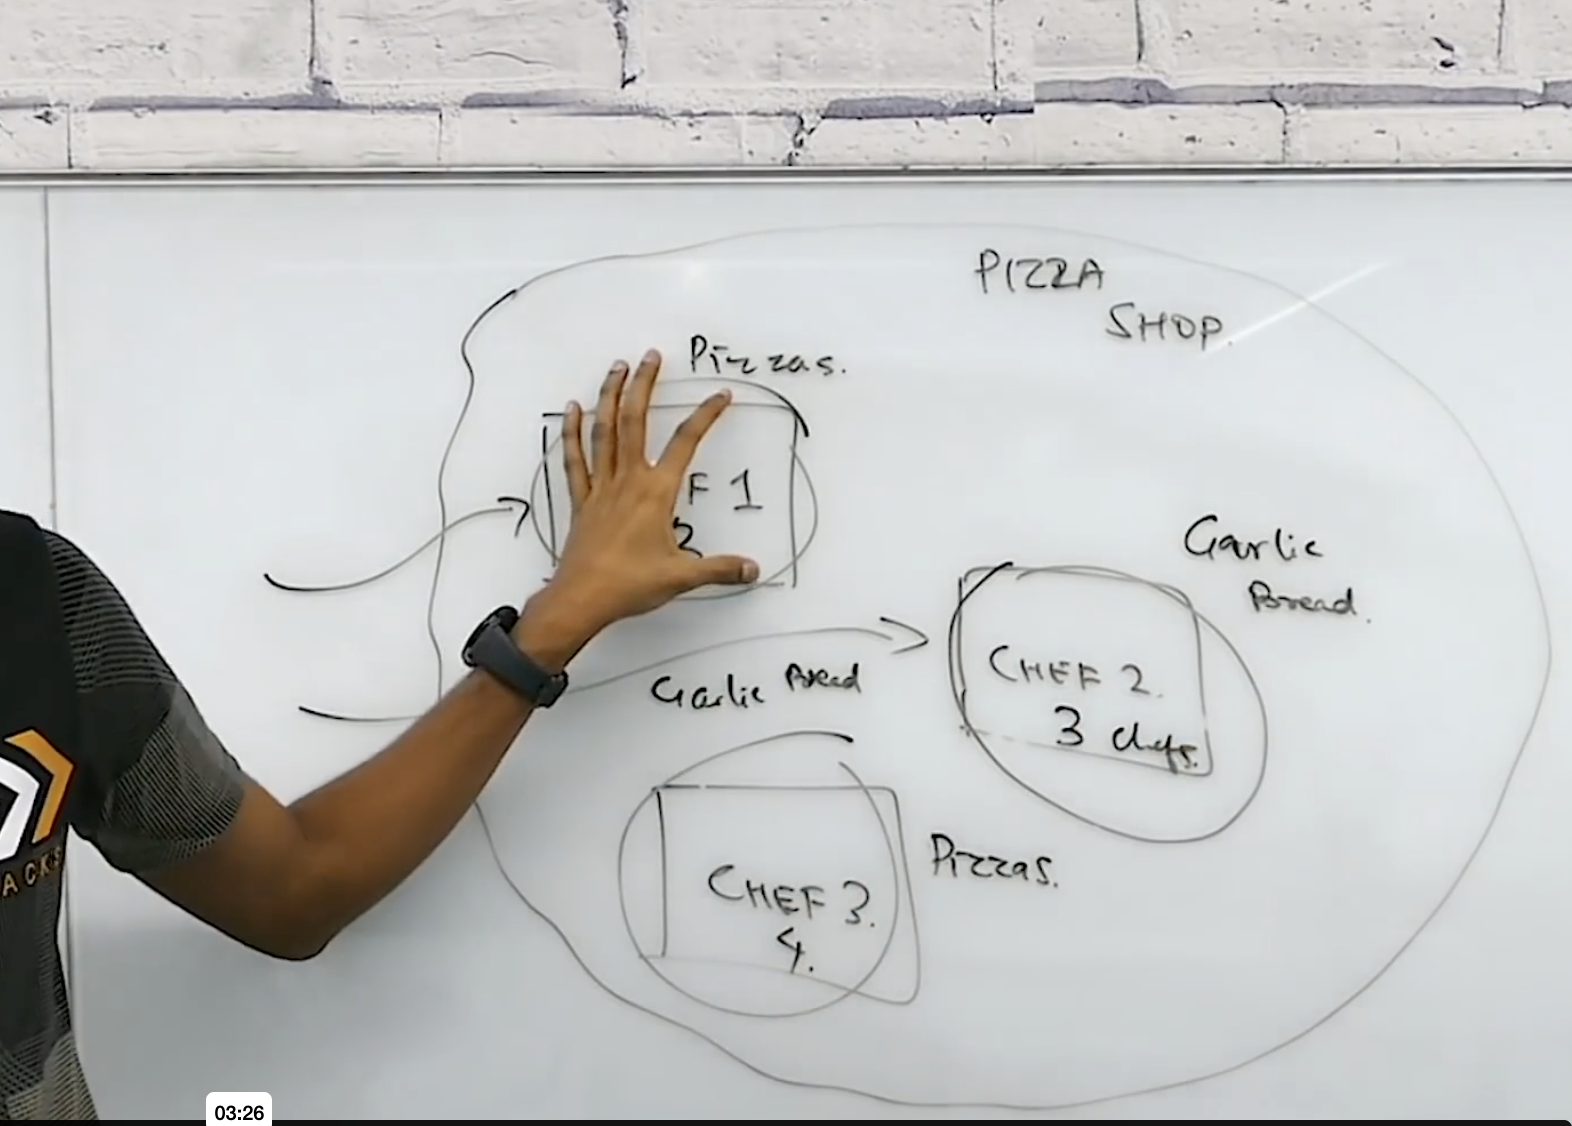 PIZZA
SHOP.
Pizzas.
F 1
Garlic
Bread.
CHEF 2.
3 chefs.
Garlic Bread
Pizzas.
CHEF 3.
4.
ACKS
03:26